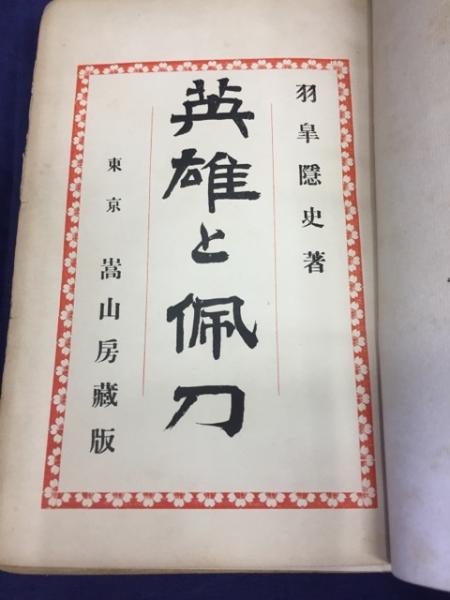 羽皐隱史著
英雄と佩刀
東京 嵩山房藏版